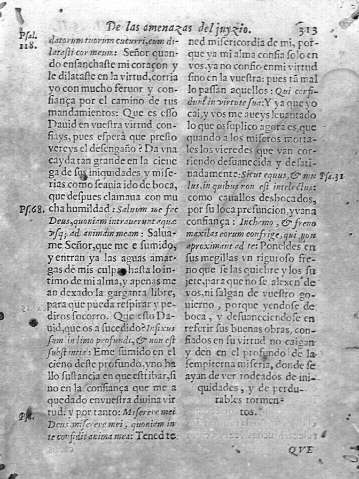 De las amenazas del juyzio. 313
Psal.
118.
datorum tuorum cucurri, cum di-
latasti cor meum: Señor quan-
do ensanchaste mi coraçon y
le dilataste en la virtud, corria
yo con mucho feruor y con-
fiança por el camino de tus
mandamientos: Que es esso
Dauid en vuestra virtud con-
fiays, pues espera que presto
vereys el desengaño? Da vna
cayda tan grande en la ciene
ga de sus iniquidades y mise-
rias, como se aquia ido de boca,
que despues clamaua con mu
Ps.68.
cha humildad: Saluum me fac
Deus, quoniam intrauerunt aquæ
vsq; ad animam meam: Salua-
me Señor, que me e sumido,
y entran ya las aguas amar-
gas de mis culpas hasta lo in-
timo de mi alma, y apenas me
an dexado la garganta libre,
para que pueda respirar y pe-
diros socorro. Que esto Da-
uid, que os a sucedido? Infixus
sum in limo profundi, & non est
substantia: Eme sumido en el
cieno deste profundo, y no ha
llo sustancia en que estribar, si
no en la confiança que me a
quedado en vuestra diuina vir
tud: y por tanto: Miserere mei
Ps.
Deus miserere mei, quoniam in
te confidit anima mea: Tened te
ned misericordia de mi, por-
que ya mi alma confia solo en
vos, ya no confio en mi virtud
sino en la vuestra: pues tā mal
lo passan aquellos: Qui confi-
dunt in virtute sua: Y ya que yo
cai, y vos me aueys leuantado
lo que os suplico agora es, que
quando a los miseros morta-
les los vieredes que van cor-
riendo desuanecida y desati-
nadamente: Sicut equus, & mu
Ps.31
lus, in quibus non est intelectus:
como cauallos desbocados,
por su loca presuncion, y vana
confiança: In chamo, & freno
maxillas eorum constringe, qui non
aproximant ad te: Poneldes en
sus megillas vn riguroso fre-
no que se las quiebre y los su
jete, para que no se alexen de
vos, ni salgan de vuestro go-
uierno, porque yendose de
boca, y desuaneciendose en
referir sus buenas obras, con-
fiados en su virtud no caigan
y den en el profundo de la
sempiterna miseria, donde se
ayan de ver rodeados de ini-
quidades, y de perdu-
rables tormen-
tos.
QVE